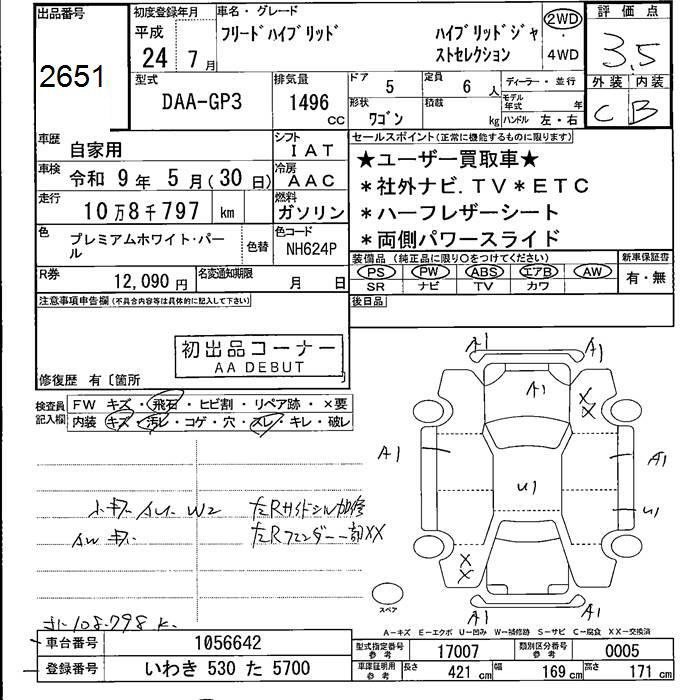 出品番号
2651
初度登録年月
平成
24 7月
車名・グレード
フリードハイブリッド ハイブリッドジャ
ストセレクション
2WD
・
4WD
評価点
3.5
外装 内装
C B
型式
DAA-GP3
排気量
1496
cc
ドア 5
定員 6 人
ディーラー・並行
形状 ワゴン
積載 kg
モデル年式 年
ハンドル 左・右
車歴 自家用
シフト
IAT
車検 令和 9年 5月(30日)
冷房
AAC
走行 10万8千797 km
燃料
ガソリン
色 プレミアムホワイト・パー
ル
色替
色コード
NH624P
セールスポイント(正常に機能するものに限ります)
★ユーザー買取車★
*社外ナビ.TV*ETC
*ハーフレザーシート
*両側パワースライド
装備品 (純正品に限り○をつけてください)
PS PW ABS エアB AW
SR ナビ TV カワ
新車保証書
有・無
R券 12,090円
名変通知期限 月 日
後日品
注意事項申告欄(不具合内容等は具体的に記入して下さい)
初出品コーナー
AA DEBUT
修復歴 有〔箇所 〕
検査員
記入欄
FW キズ・飛石・ヒビ割・リペア跡・×要
内装 キズ・汚レ・コゲ・穴・スレ・キレ・破レ
小キズ AU. W2
AW キズ
左Rサイドシル加修
左Rフェンダー一部XX
108.798 K.
A1 A1
A1
X
X
A1
A1
U1
U1
X
X
A1 A1
スペア
A-キズ E-エクボ U-凹み W-補修跡 S-サビ C-腐食 XX-交換済
車台番号 1056642
登録番号 いわき 530 た 5700
型式指定番号
参考
17007
類別区分番号
参考
0005
車庫証明用
参考
長さ 421 cm 幅 169 cm 高さ 171 cm